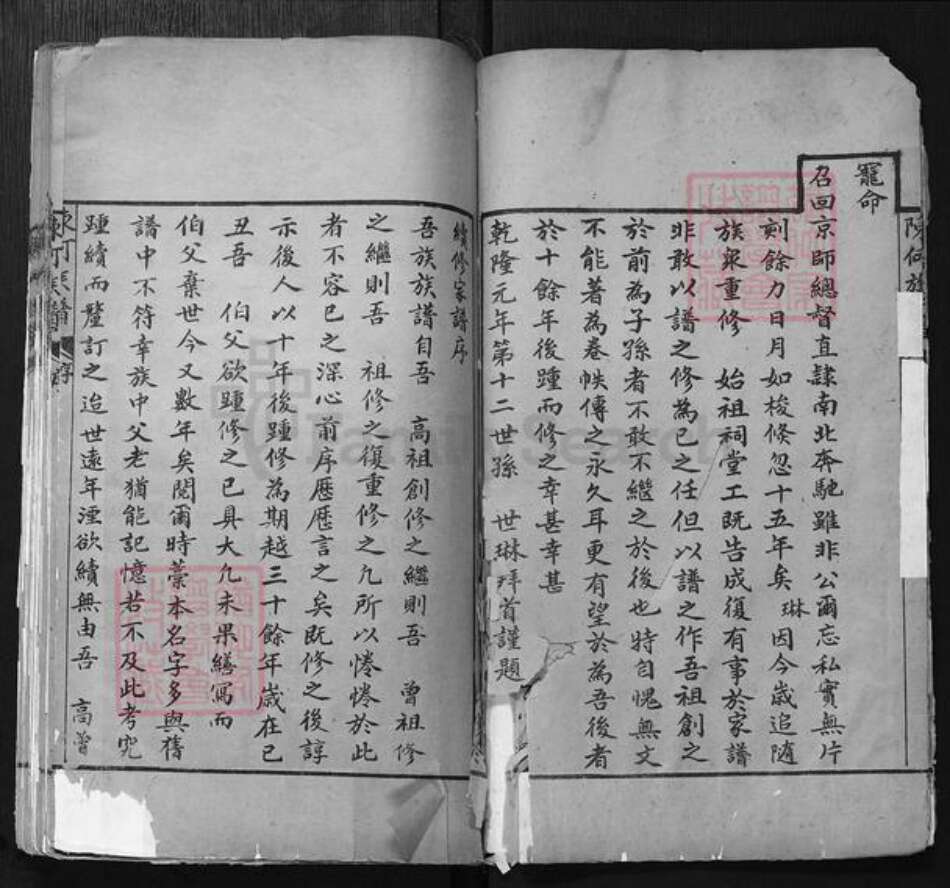 寵命
召回京師總督直隸南北奔馳雖非公爾忘私實無片
刻餘力日月如梭倏忽十五年矣琳因今歲追隨
族眾重修 始祖祠堂工既告成復有事於家譜
非敢以譜之修為已之任但以譜之作吾祖創之
於前為子孫者不敢不繼之於後也特自愧無文
不能著為卷帙傳之永久耳更有望於為吾後者
於十餘年後踵而修之幸甚幸甚
乾隆元年第十二世孫 世琳拜首謹題
續修家譜序
吾族族譜自吾 高祖創修之繼則吾 曾祖修
之繼則吾 祖修之復重修之凡所以惓惓於此
者不容已之深心前序歷歷言之矣既修之後諄
示後人以十年後踵修為期越三十餘年歲在已
丑吾 伯父欲踵修之已具大凢未果繕寫而
伯父棄世今又數年矣閱爾時藁本名字多與舊
譜中不符幸族中父老猶能記憶若不及此考究
踵續而釐訂之迨世遠年湮欲續無由吾 高曾